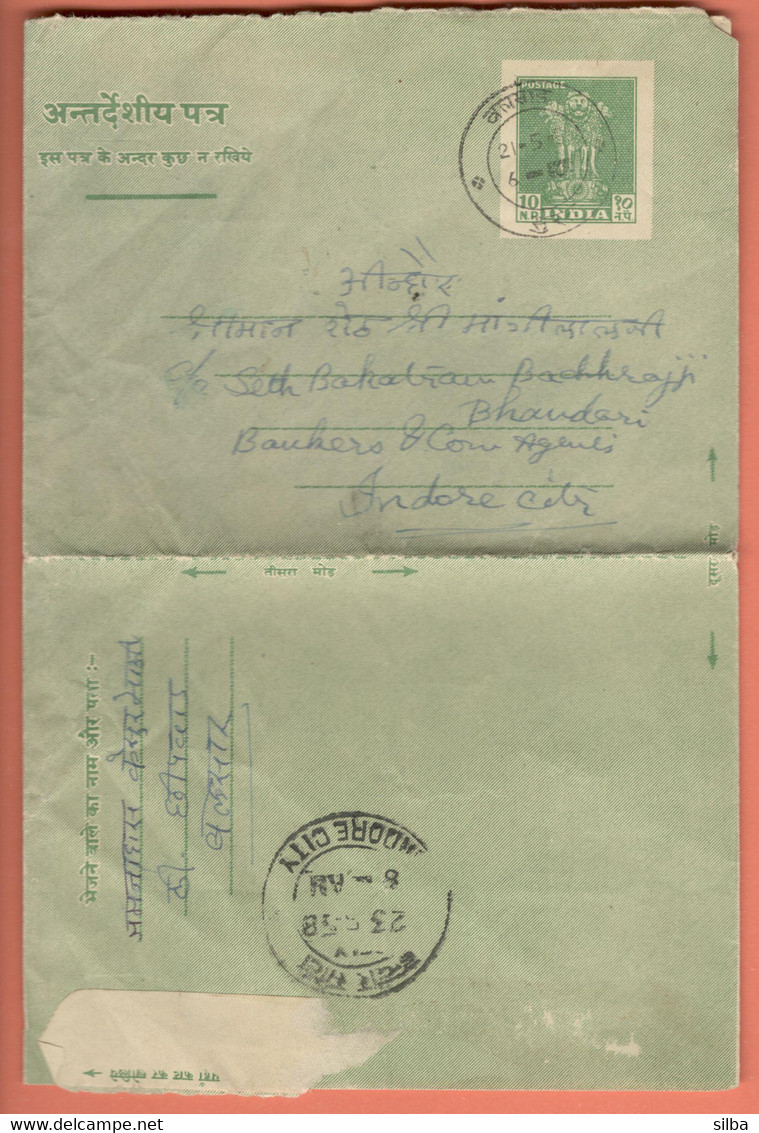 अन्तर्देशीय पत्र
इस पत्र के अन्दर कुछ न रखिये
POSTAGE
10 १०
N.P. INDIA न.पै.
21-5
6
श्रीमान शेठ श्री मांगीलालजी
c/o Seth Bakatram Bachhrajji
Bhandari
Bankers & Com Agents
Indore City
तीसरा मोड़
दूसरा मोड़
भेजने वाले का नाम और पता :-
INDORE CITY
8 - AM
23 58
यहां काट कर खोलिये
silba